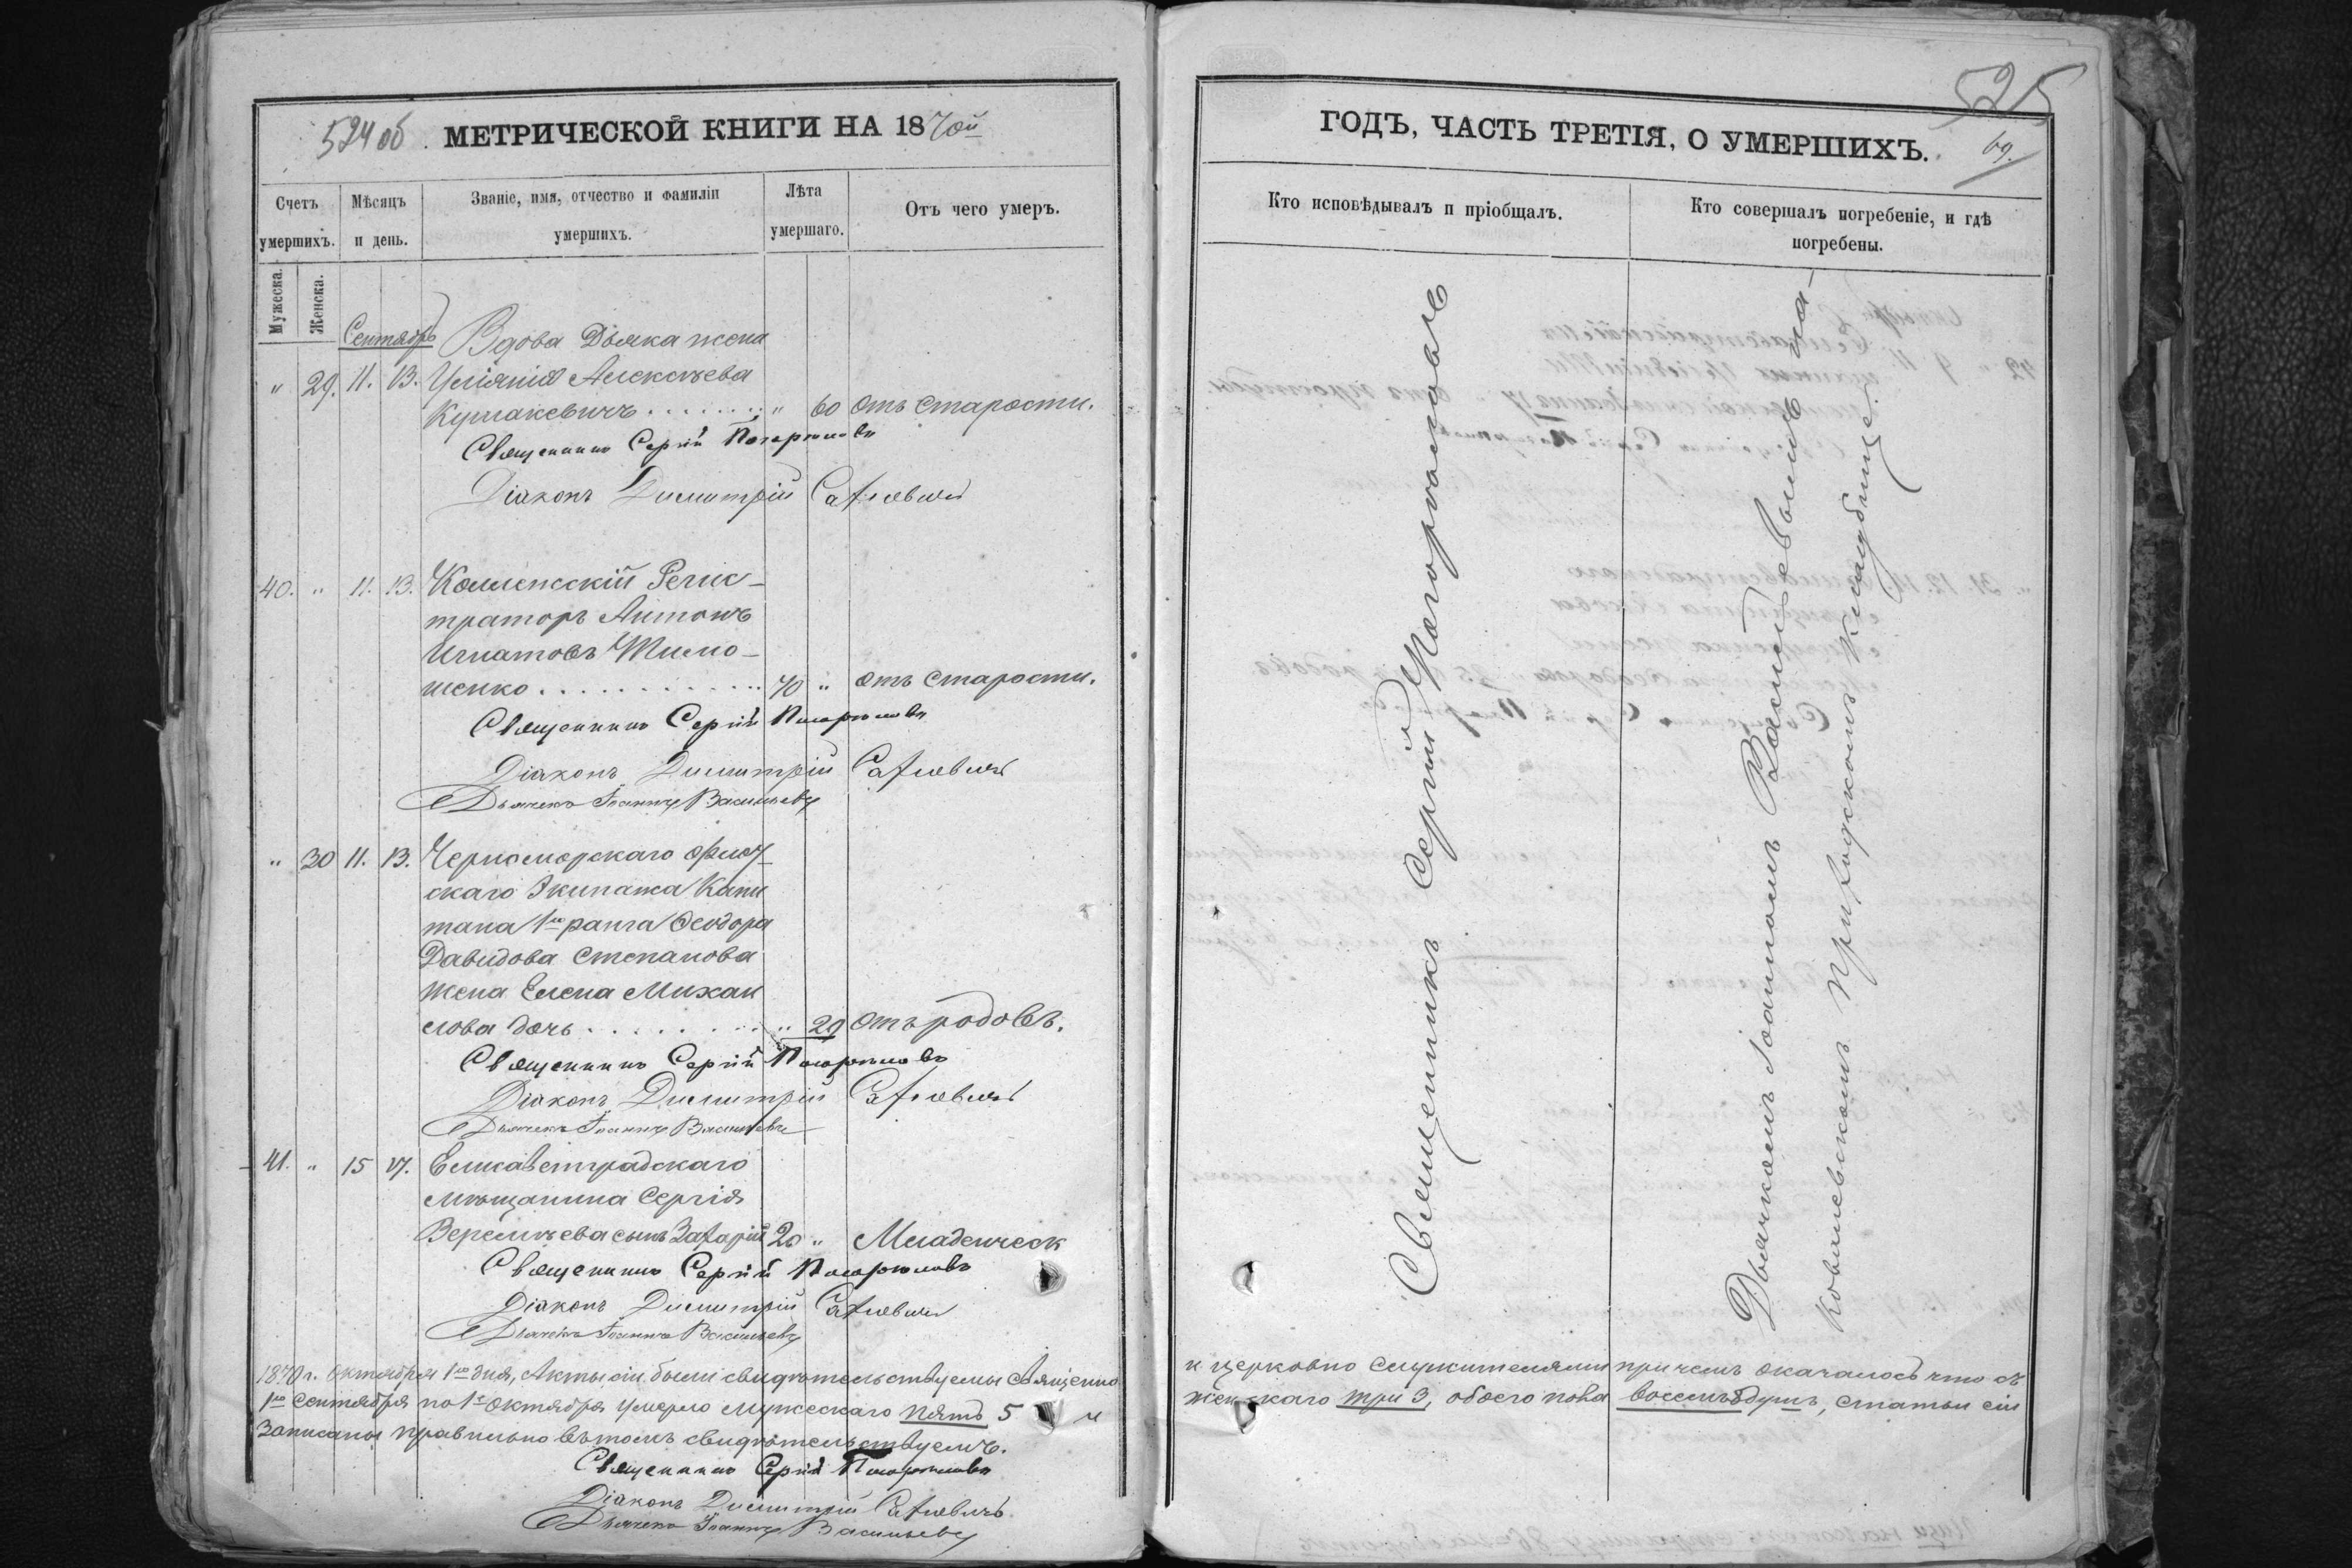 524 об. МЕТРИЧЕСКОЙ КНИГИ НА 1870й
Счетъ умершихъ.
Мѣсяцъ и день.
Званіе, имя, отчество и фамилія умершихъ.
Лѣта умершаго.
Отъ чего умеръ.
Мужеска.
Женска.
Сентябрь Вдова Дьяка жена
" 29. 11. 13. Уліянія Алексѣева
" 60 Отъ старости.
Священникъ Сергій
Діаконъ Димитрій
40. " 11. 13. Коллежскій Регис-
траторъ Антонъ
Игнатовъ Тимо-
шенко 70 " отъ старости.
Священникъ Сергій
Діаконъ Димитрій
Дьячекъ Іоаннъ Васильевъ
" 30 11. 13. Черноморскаго флот-
скаго Экипажа Капи
тана 1го ранга Ѳеодора
Давидова Степанова
жена Елена Михаи
лова дочь " 29 отъ родовъ.
Священникъ Сергій
Діаконъ Димитрій
Дьячекъ Іоаннъ Васильевъ
41. " 15 17. Елисаветградскаго
мѣщанина Сергія
сынъ Захарій 20 " Младенческ
Священникъ Сергій
Діаконъ Димитрій
Дьячекъ Іоаннъ Васильевъ
1870 г. Октября 1го дня, Акты сіи были свидѣтельствуемы Священно
1го Сентября по 1е Октября умерло мужескаго пять 5 и
Записаны правильно въ томъ свидѣтельствуемъ.
Священникъ Сергій
Діаконъ Димитрій
Дьячекъ Іоаннъ Васильевъ
525
69.
ГОДЪ, ЧАСТЬ ТРЕТІЯ, О УМЕРШИХЪ.
Кто исповѣдывалъ и пріобщалъ.
Кто совершалъ погребеніе, и гдѣ погребены.
Священникъ Сергій
Дьячкомъ Іоанномъ Васильевымъ на-
Ковалевскомъ Приходскомъ кладбище.
и церковно служителями при чемъ оказалось что съ
женскаго три 3, обоего пола восемь 8 душъ, статьи сіи